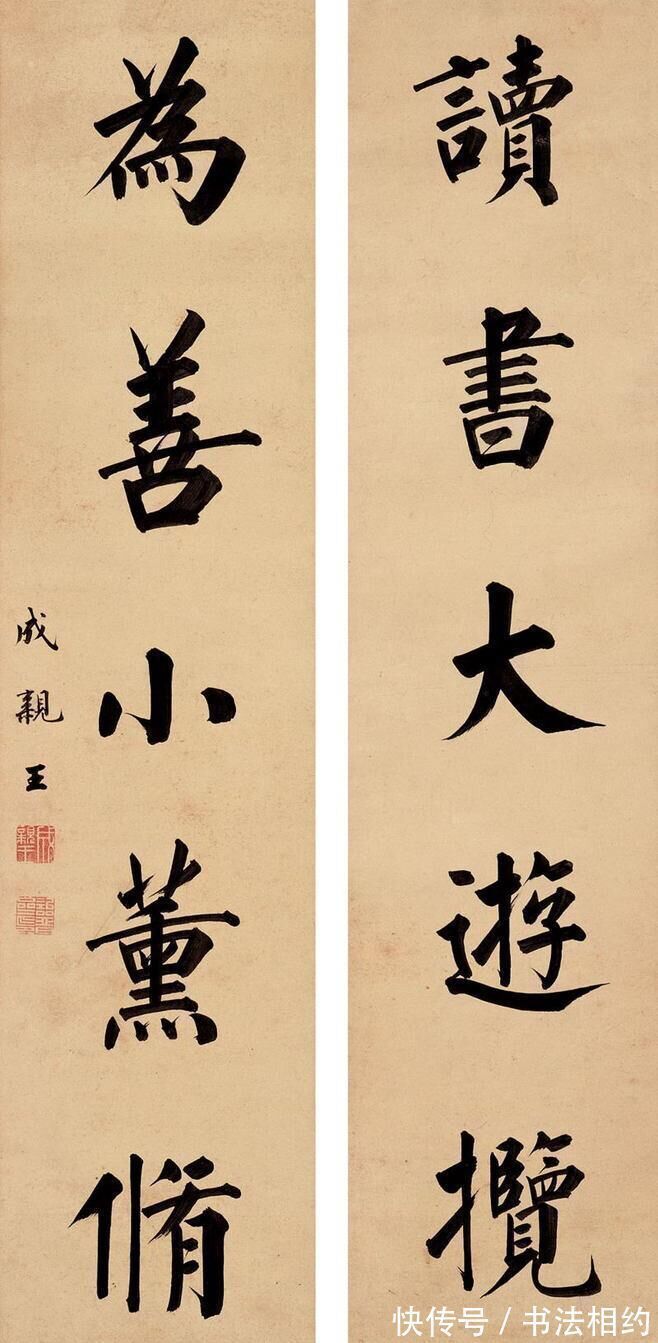 讀書大遊攬
為善小薰脩
成親王
快传号 / 书法相约